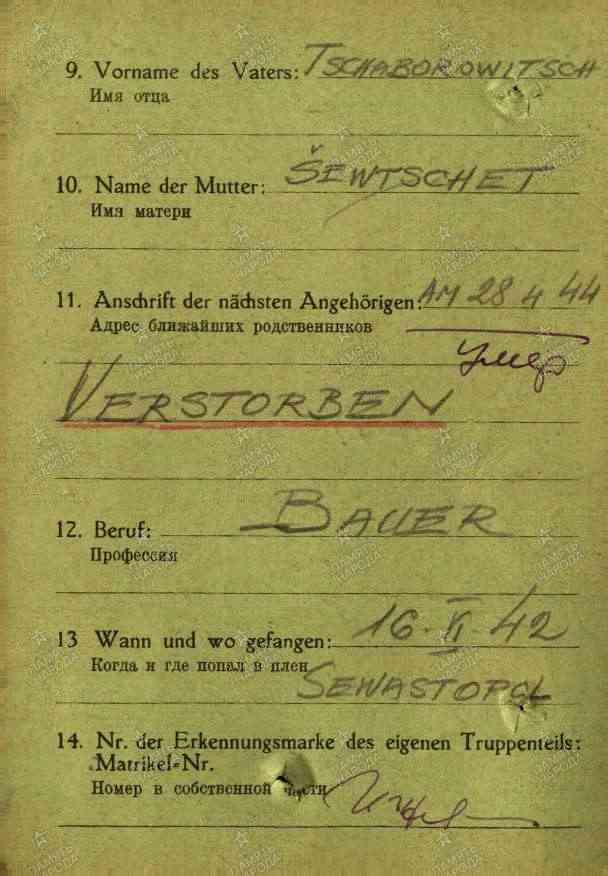 9. Vorname des Vaters: TSCHABOROWITSCH
Имя отца
10. Name der Mutter: ŠEWTSCHET
Имя матери
11. Anschrift der nächsten Angehörigen: AM 28 4 44
Адрес ближайших родственников
Умер
VERSTORBEN
12. Beruf: BAUER
Профессия
13 Wann und wo gefangen: 16. VI. 42
Когда и где попал в плен
SEWASTOPOL
14. Nr. der Erkennungsmarke des eigenen Truppenteils:
Matrikel-Nr.
Номер в собственной части